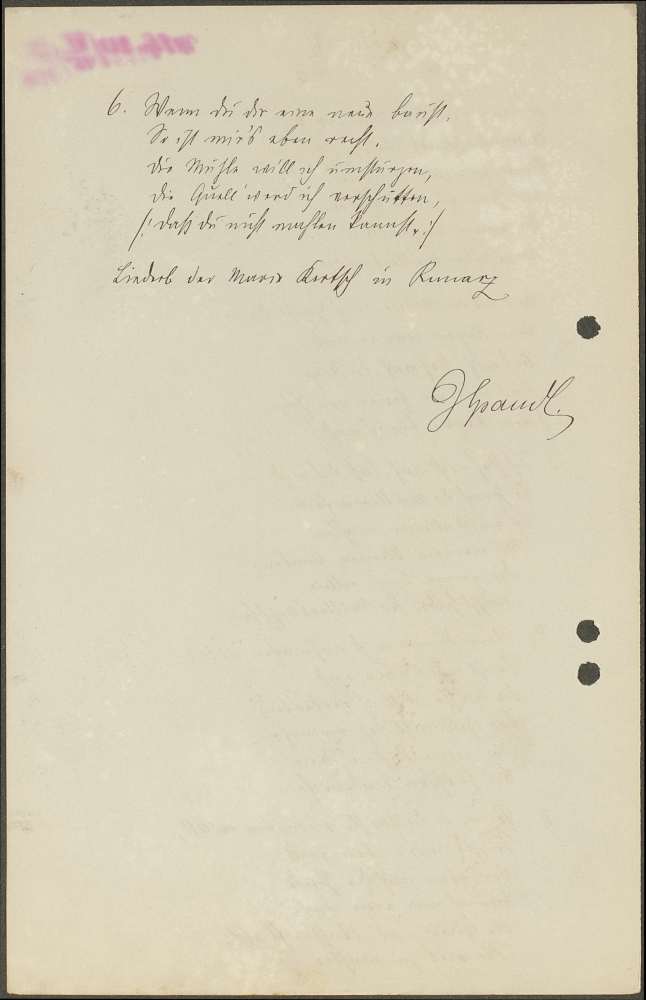 6. Wenn du dir eine neue baust,
So ist mir's eben recht.
Die Mühle will ich umstürzen,
die Quell' werd ich verschütten,
/: daß du nicht mahlen kannst. :/
Liederb der Marie Kertsch in Runarz
JSpandl.